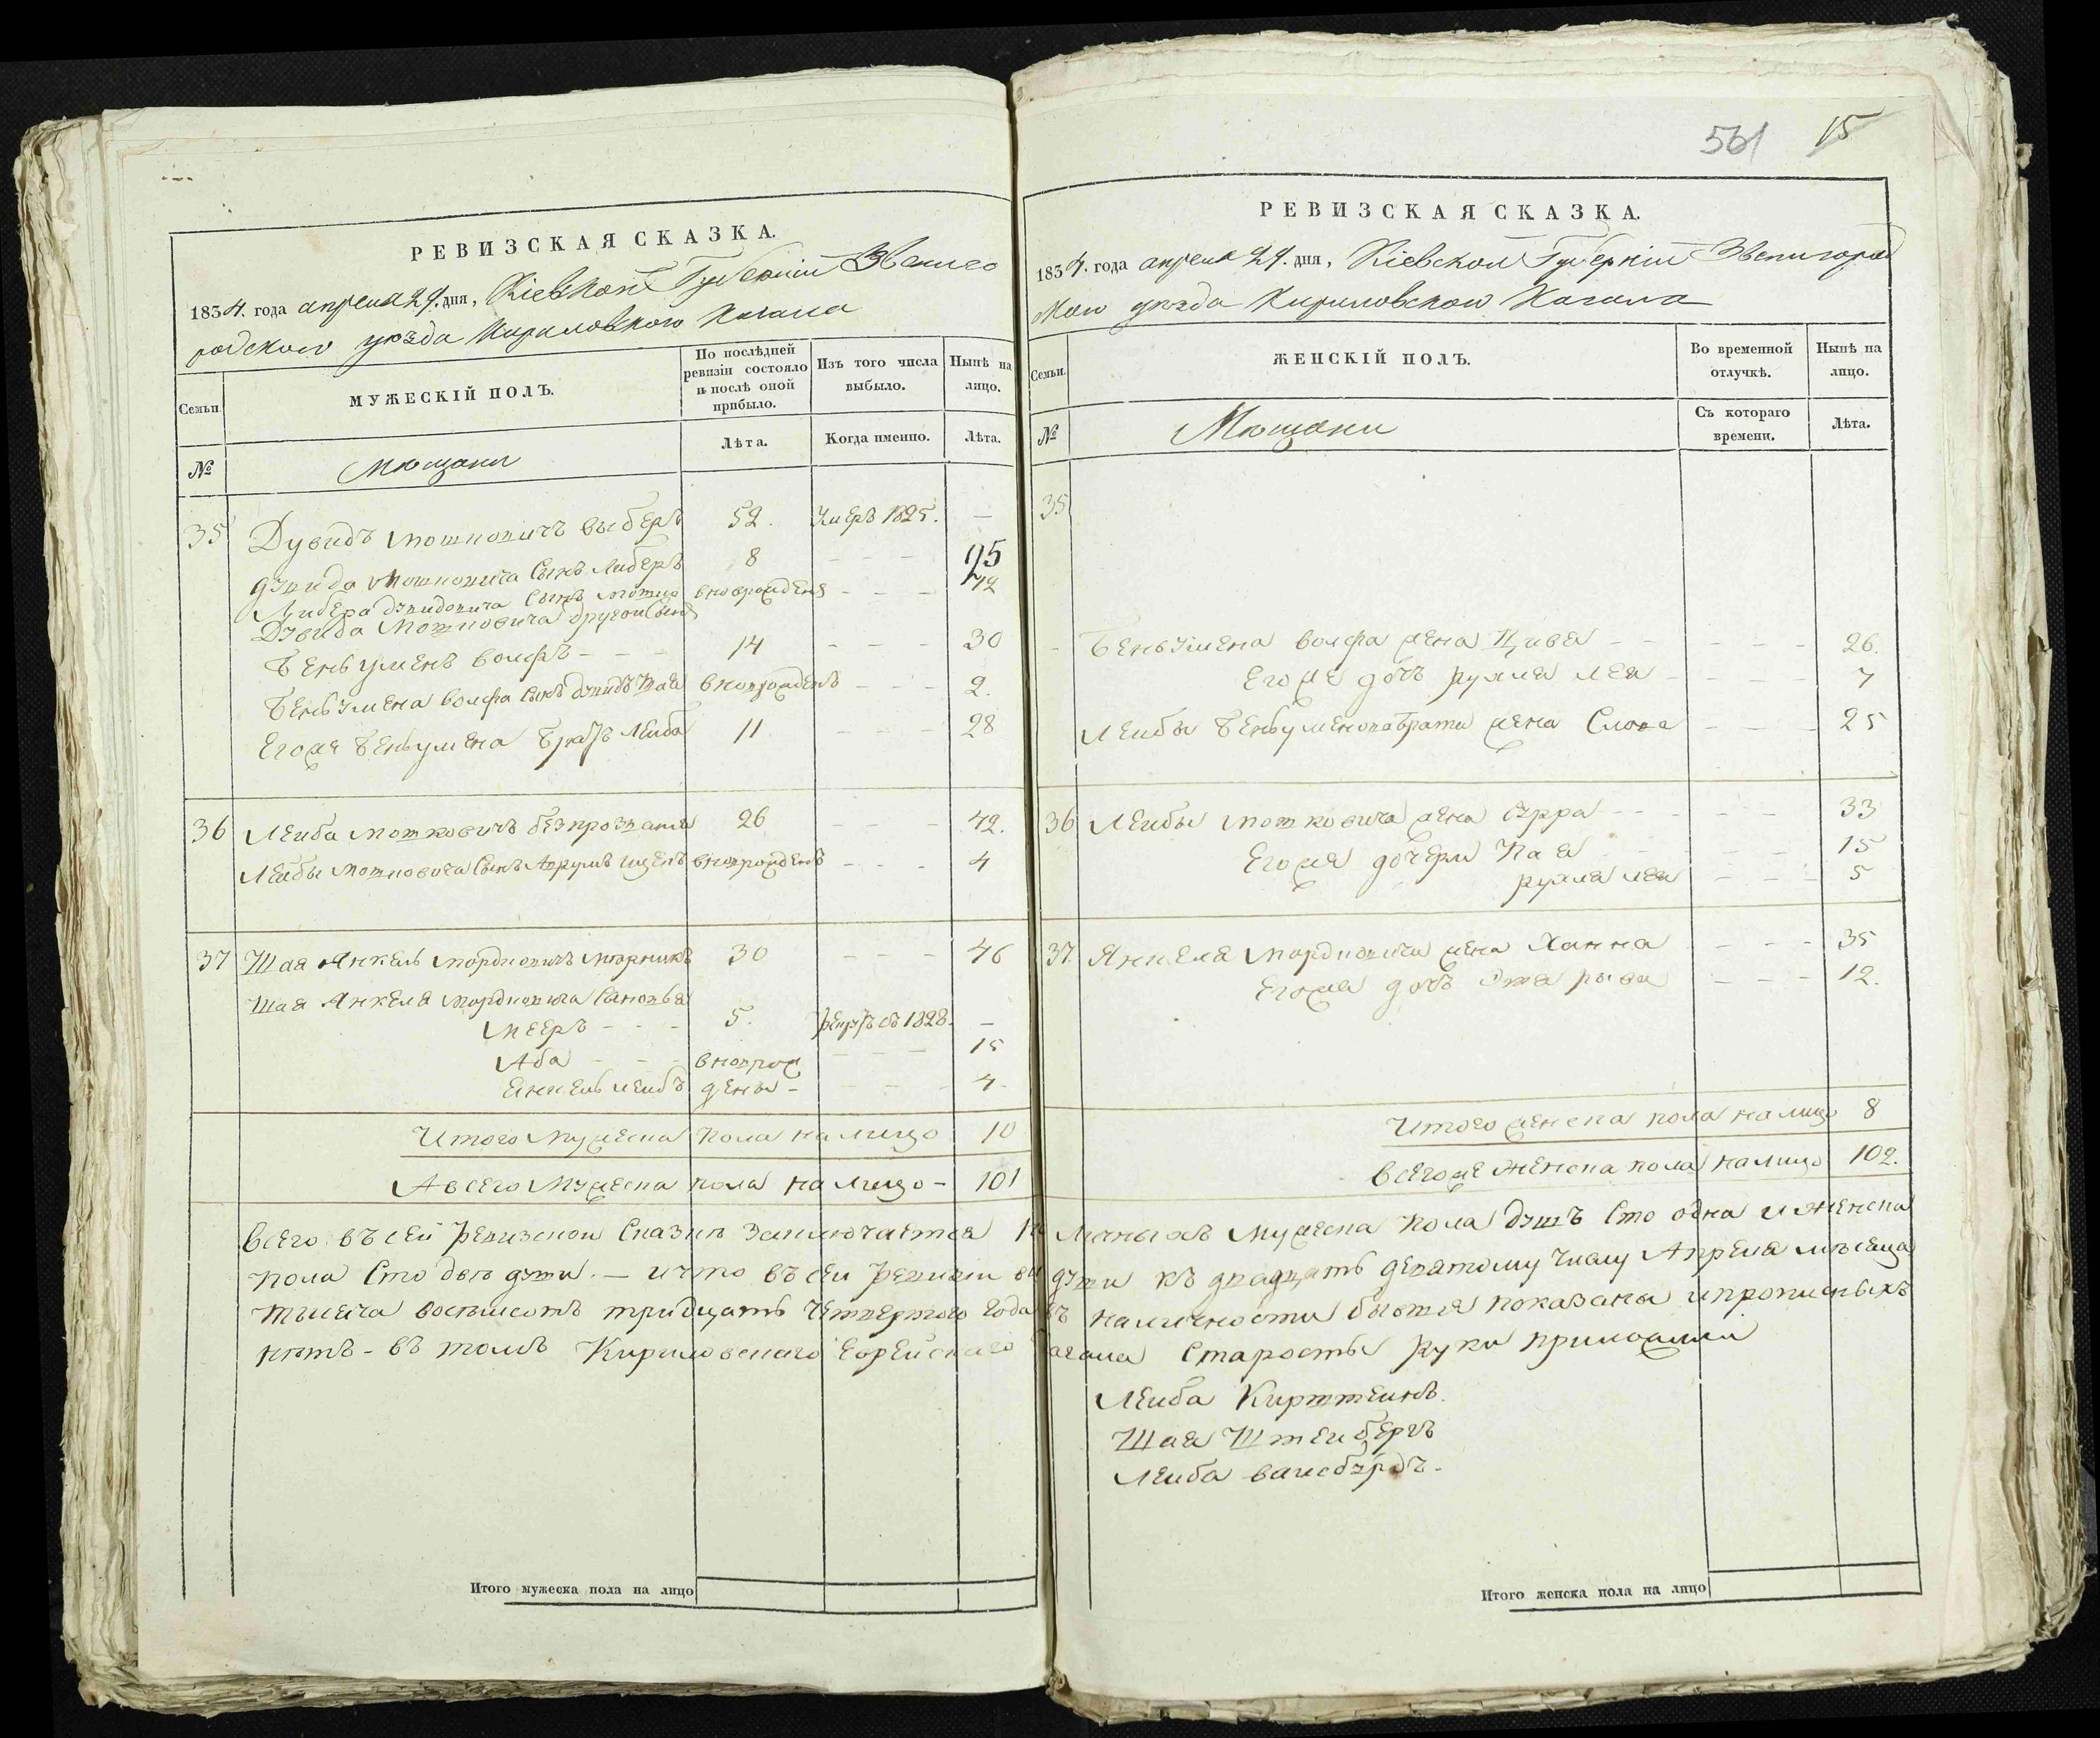 РЕВИЗСКАЯ СКАЗКА.
1834. года апреля 29. дня, Кіевской Губерніи Звениго
родского уезда Кириловского Кагала
Семьи.
МУЖЕСКІЙ ПОЛЪ.
По послѣдней ревизіи состояло и послѣ оной прибыло.
Изъ того числа выбыло.
Нынѣ на лицо.
№
Мещани
Лѣта.
Когда именно.
Лѣта.
35 Дувидъ Мошковичъ 52. Умеръ 1825. —
Дувида Мошковича Сынъ Либеръ 8 - - - 25
Либера Дувидовича Сынъ Мошко вноврожденъ - - -
Дувида Мошковича другой Сынъ
Беньуменъ Волфъ - - - 14 - - - 30
Беньумена Волфа Сынъ Дувидъ Шая вноврожденъ - - - 2.
Егоже Беньумена братъ Лейба 11 - - - 28
36 Лейба Мошковичъ безпрозвания 26 - - - 42.
Лейбы Мошковича Сынъ Аврумъ Ицекъ вноврожденъ - - - 4
37 Шая Янкель Мордковичъ 30 - - - 46
Шая Янкеля Мордковича Сыновья
Мееръ - - - 5. 1828. —
Аба - - - вноврож - - - 15
Янкель Лейбъ дены - - - - 4
Итого Мужеска пола на лицо 10
А всего Мужеска пола на лицо - 101
561 15
РЕВИЗСКАЯ СКАЗКА.
1834. года апреля 29. дня, Кіевской Губерніи Звенигород
ского уезда Кириловского Кагала
Семьи.
ЖЕНСКІЙ ПОЛЪ.
Во временной отлучкѣ.
Нынѣ на лицо.
№
Мещани
Съ котораго времени.
Лѣта.
35
Беньумена Волфа жена Цивя - - - - - 26.
Егоже дочь Рухля Лея - - - - 7
Лейбы Беньуменова брата жена Слова - - - 25
36 Лейбы Мошковича жена Сурра - - - - - 33
Егоже дочери Хая - - - - - 15
Рухля Лея - - - 5
37 Янкеля Мордковича жена Ханна - - - 35
Егоже дочь - - - 12.
Итого женска пола на лицо 8
Всегоже женска пола на лицо 102.
Всего въ сей Ревизской Сказке Заключается На личных Мужеска Пола душъ Сто одна и женска
пола Сто две души. — и что въ сей Ревизии души къ двадцать девятому Числу Апреля месяца
тысяча восемсотъ тридцать Четвертого Года въ наличности бытия показаны и прописныхъ
нетъ - въ томъ Кириловскаго Еврейскаго Кагала Старосты руки приложили
Лейба Кирштеинъ.
Шая Штейнбергъ
Лейба
Итого мужеска пола на лицо
Итого женска пола на лицо